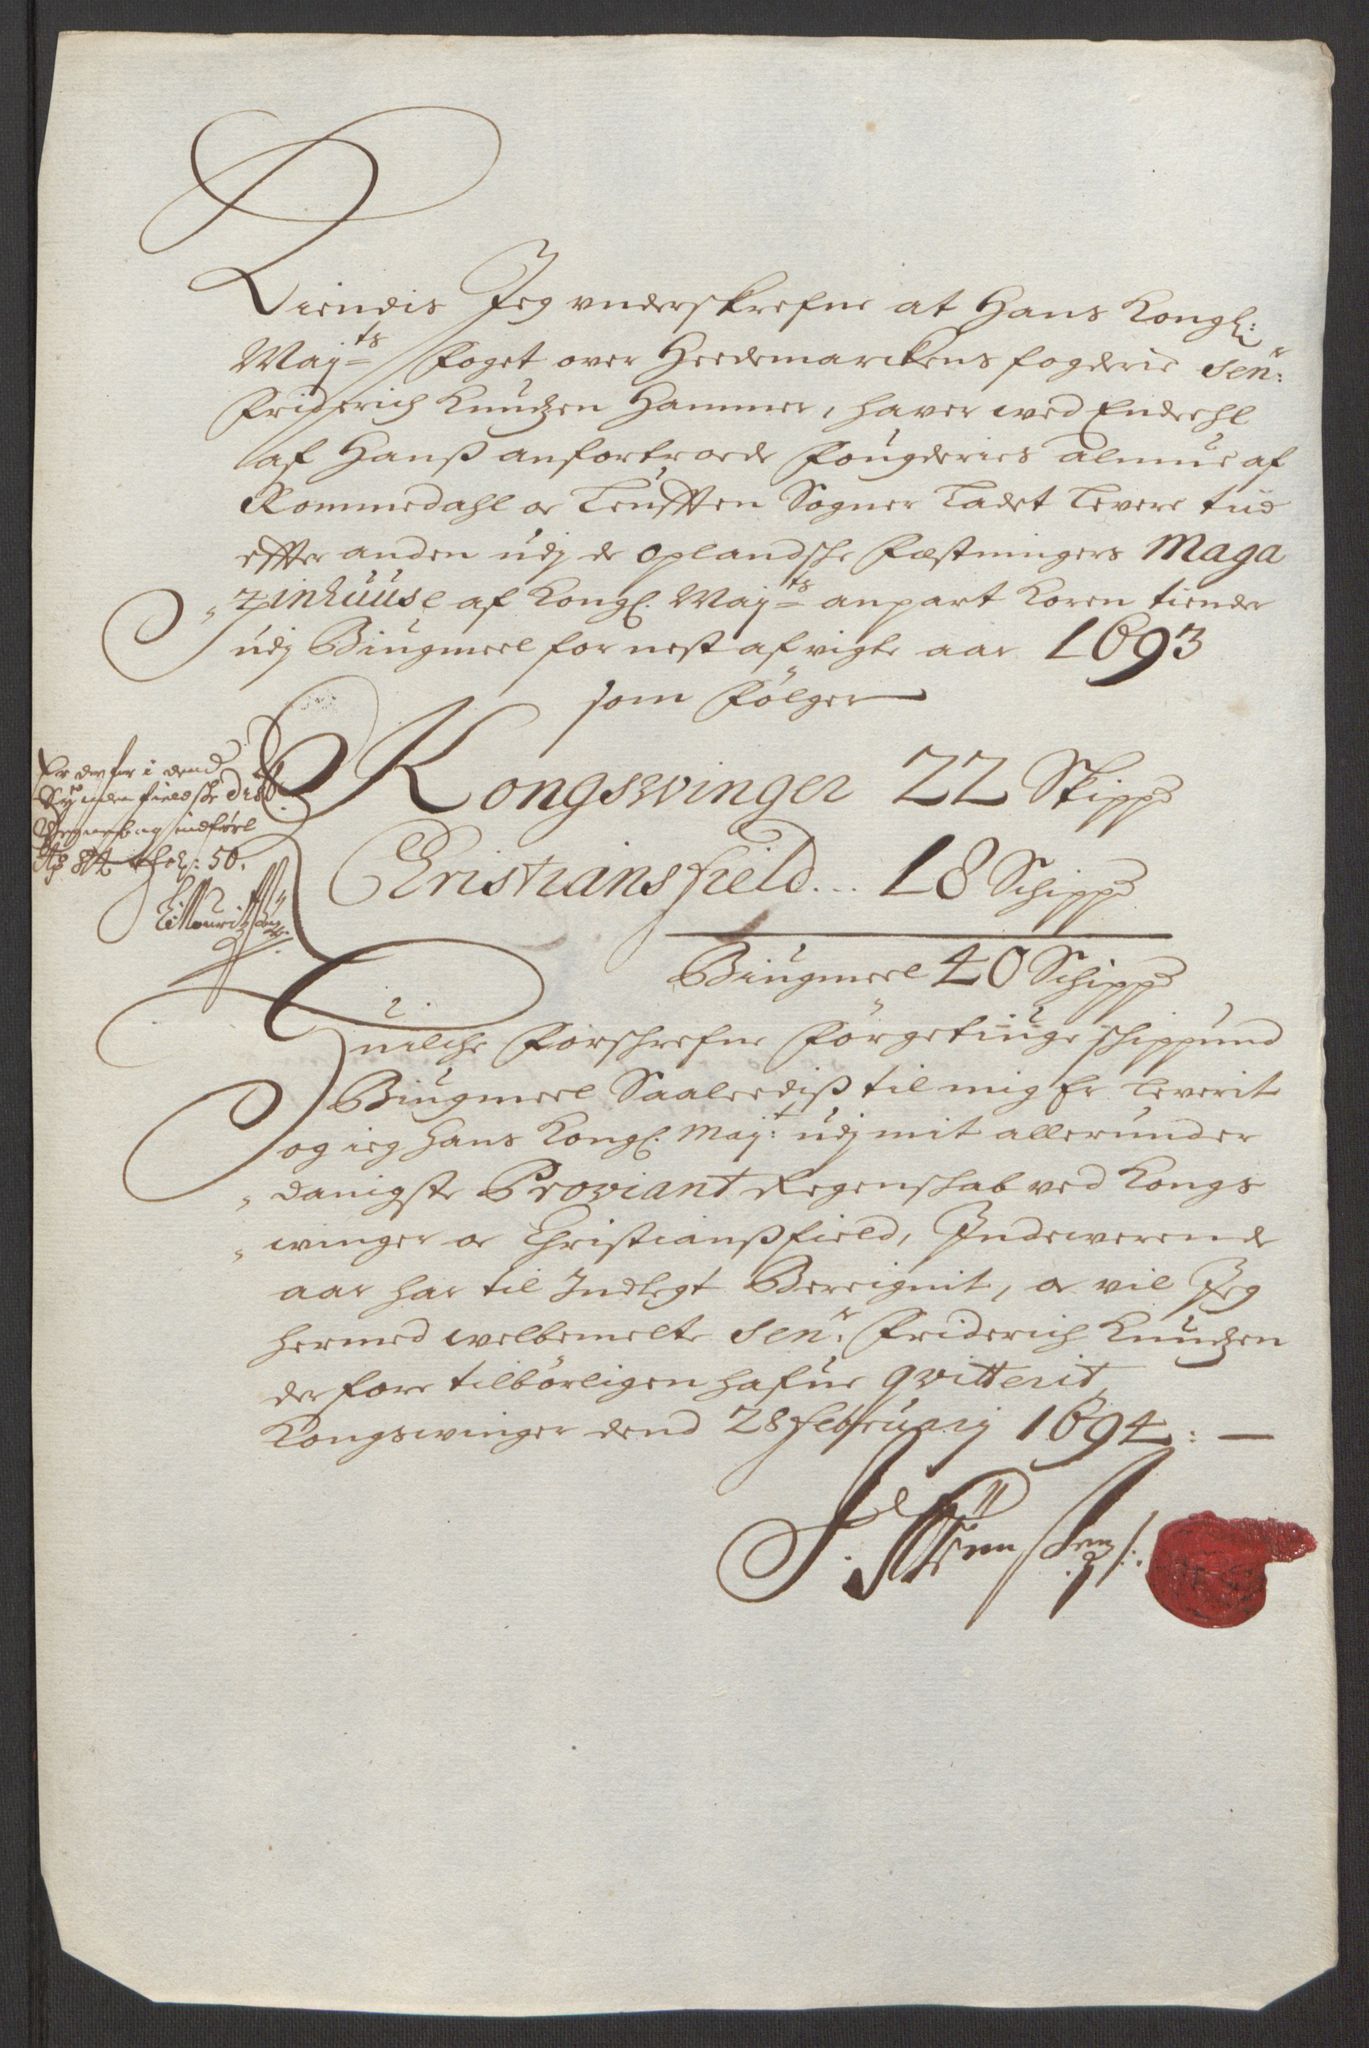 Kiendis Jeg underskrefne at Hans Kongl:
Maj:ts Foget over Heedemarckens fogderie Sen:r
Friderich Knudzen Hammer, haver wed Endeehl
af Hanß anfortroede Fougderies almue af
Rommedahl oc Leufften Sogner Ladet Levere tiid
effter anden udj de oplandsche Fæstningers Maga
"zinhuuse af Kongl. Maj:ts anpart Koren tiender
udj Biugmeel for nest afvigte aar 1693
som Følger
Kongswinger 22 Skipp
Christiansfield... 18 Schipp
Biugmeel 40 Schipp
Er derfor i dend
Synden fieldsche
Regnebog indført
50.
huilche Forschrefne Førgetiuge schippund
Biugmeel Saaleediß til mig Er Leverit
og ieg Hans Kongl. Maj:t udj mit allerunder
"danigste Proviant Regenskab ved Kongs
"winger oc Christianßfield, Indewerende
aar har til Indtegt Bereignit, oc vil Jeg
hermed welbemelte Sen:r Friderich Knudzen
derfore tilbørligen hafue qvitterit,
Kongswinger dend 28 February 1694: —